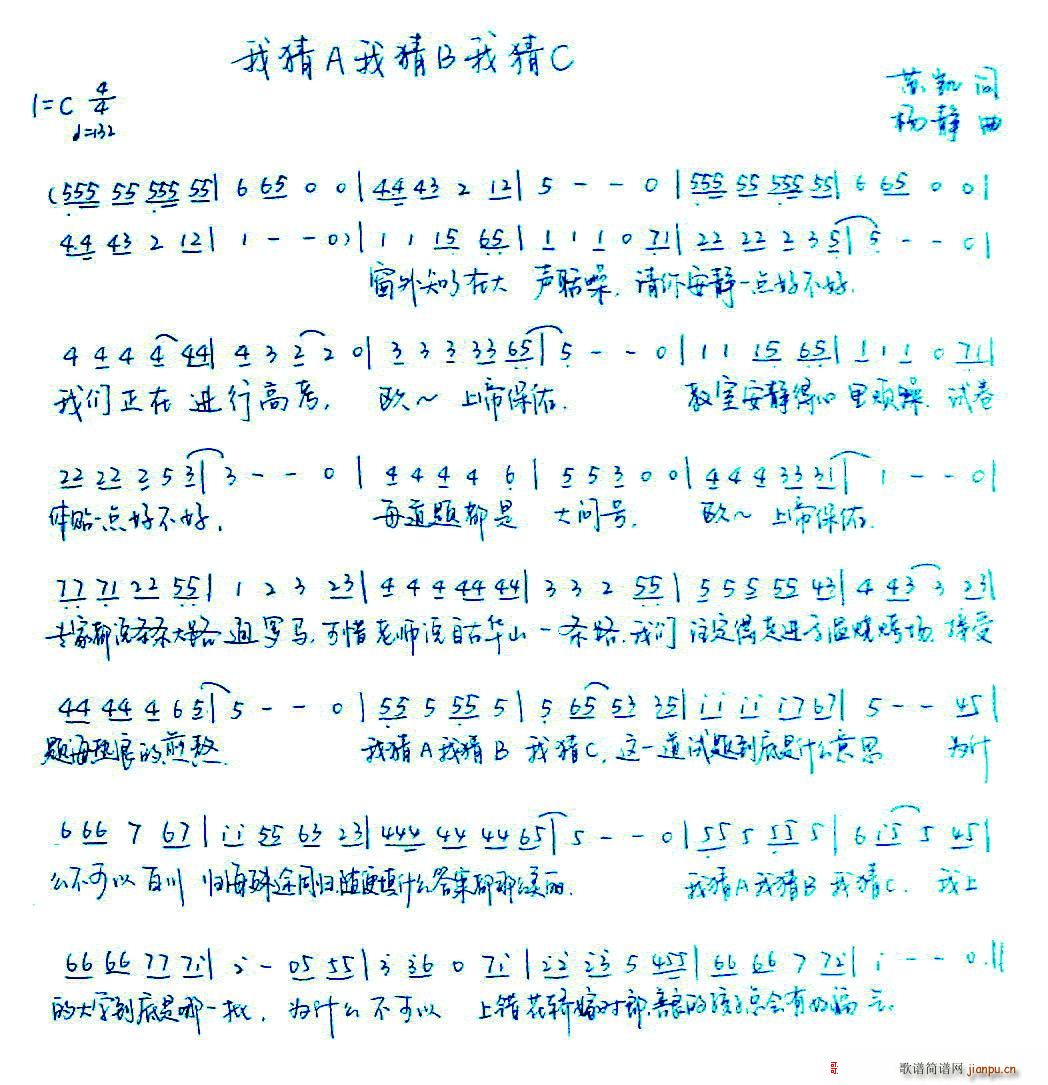 我猜A我猜B我猜C
苏凯 词
1=C 4/4
♩=132
杨静 曲
(555 55 555 55| 6 65 0 0| 44 43 2 12| 5 - - 0 |555 55 555 55| 6 65 0 0|
44 43 2 12| 1 - - 0)| 1 1 15 65| 1 1 1 0 71| 22 22 2 3 5| 5 - - 0|
窗外知了在大 声聒噪, 请你安静一点好不好.
4 4 4 4 44| 4 3 2 2 0| 3 3 3 33 65| 5 - - 0| 1 1 15 65| 1 1 1 0 71|
我们正在 进行高考, 欧~ 上帝保佑. 教室安静得心 里烦躁, 试卷
22 22 2 5 3| 3 - - 0 | 4 4 4 4 6 | 5 5 3 0 0| 4 4 4 33 31| 1 - - 0|
体贴一点好不好, 每道题都是 大问号, 欧~ 上帝保佑.
77 71 22 55| 1 2 3 23| 4 4 4 44 44| 3 3 2 55| 5 5 5 55 43| 4 43 3 23|
专家都说条条大路 通罗马, 可惜老师说自古华山一条路, 我们 注定得走进高温烧烤场, 接受
44 44 4 6 5| 5 - - 0 | 55 5 55 5| 5 65 53 35| i i i i i7 67| 5 - - 45|
题海热浪的煎熬 我猜A我猜B 我猜C, 这一道试题到底是什么意思 为什
6 66 7 67| i i 55 63 23| 444 44 44 65| 5 - - 0 | 55 5 55 5| 6 i5 5 45|
么不可以百川 归海殊途同归,随便填什么答案都那么美丽. 我猜A我猜B 我猜C, 我上
66 66 77 7i| 2 - 05 55| 3 36 0 7i| 22 23 5 455| 66 66 7 72| i - - 0.||
的大学到底是哪一批, 为什么不可以 上错花轿嫁对郎,善良的孩子总会有好福气.
歌谱简谱网 jianpu.cn